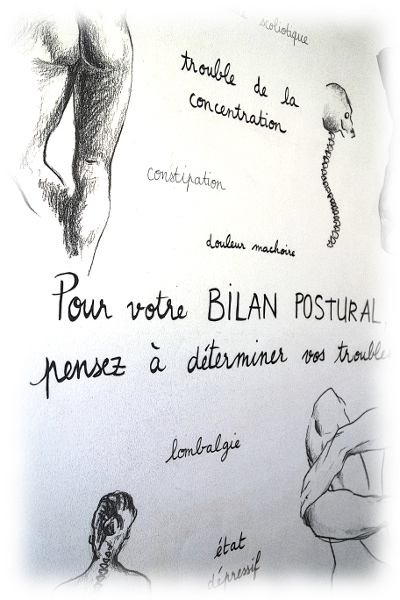 scoliotique
trouble de la
concentration
constipation
douleur machoire
Pour votre BILAN POSTURAL,
pensez à déterminer vos troubles
lombalgie
état
dépressif